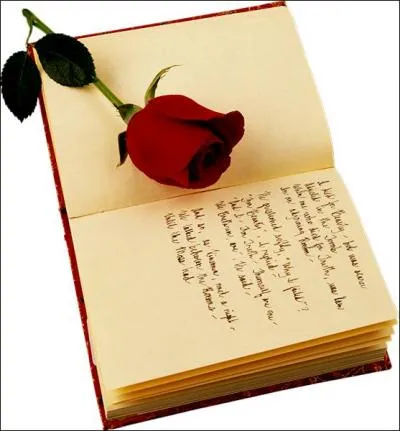 I died for Beauty, but was scarce
Adjusted in the Tomb
When one who died for Truth, was lain
In an adjoining Room –
He questioned softly, "Why I failed"?
"For Beauty", I replied –
"And I – for Truth – Themself are one –
We Brethren, are", He said –
And so, as Kinsmen, met a Night –
We talked between the Rooms –
Until the Moss had